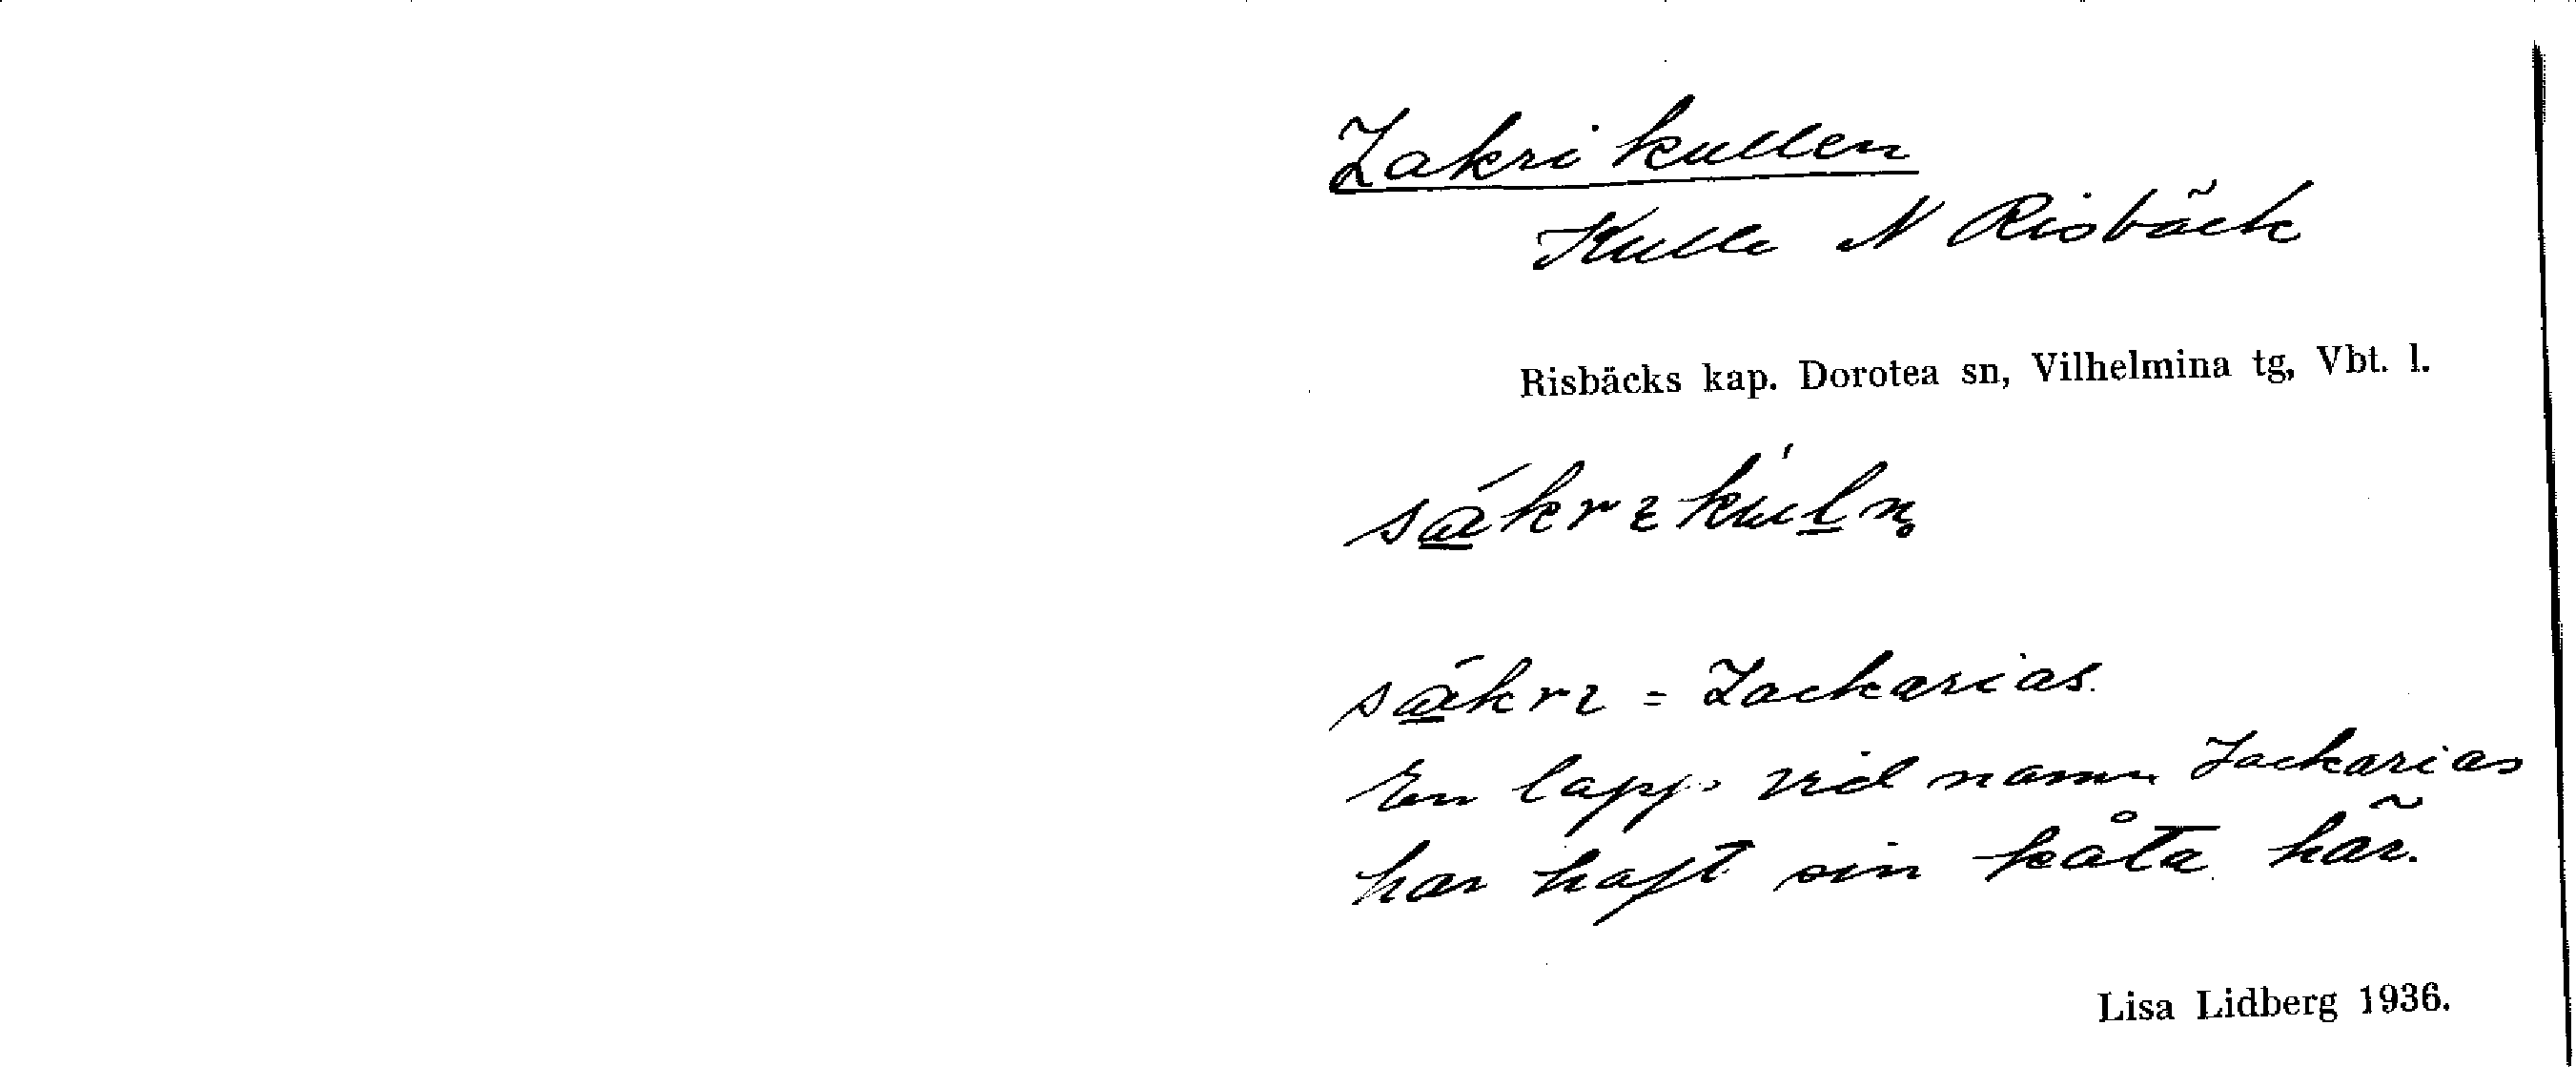 Zakrikullen
Kulle N Risbäck
Risbäcks kap. Dorotea sn, Vilhelmina tg, Vbt. l.
sákrɩkùln̥
sákrɩ = Zackarias.
En lapp vid namn Zackarias
har haft sin kåta här.
Lisa Lidberg 1936.